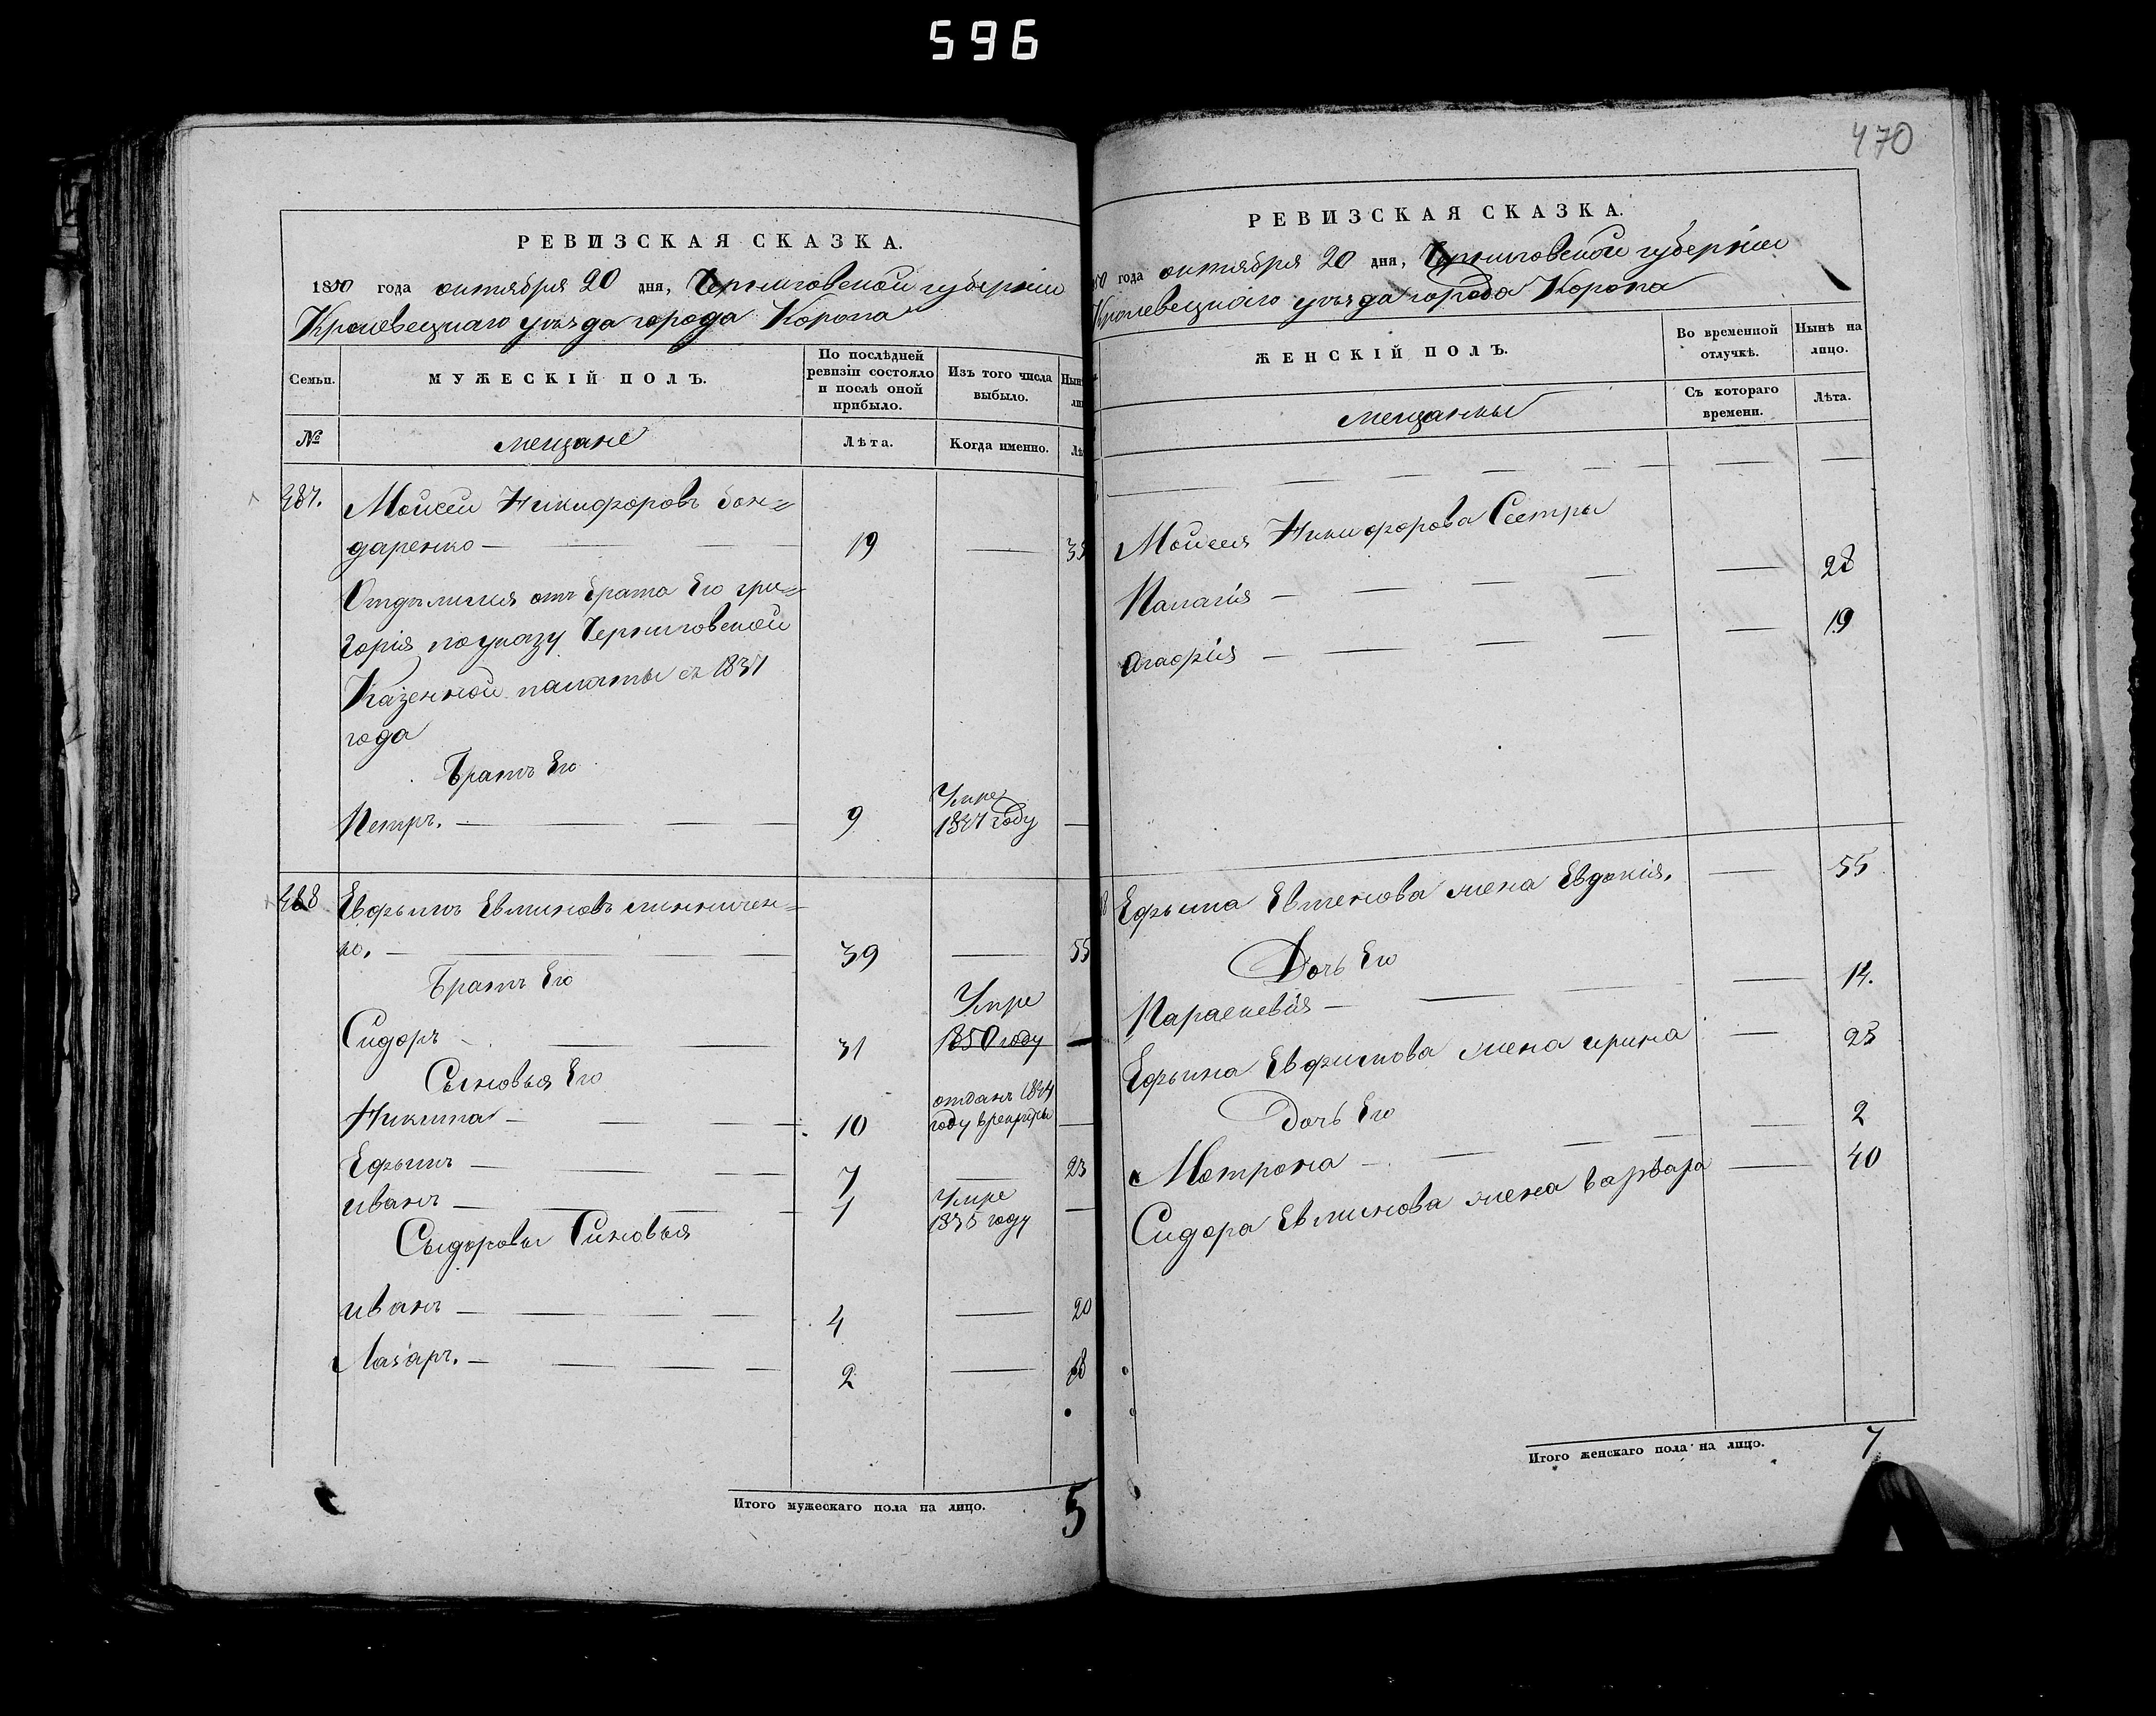 596
РЕВИЗСКАЯ СКАЗКА.
1850 года октября 20 дня, Черниговской губерніи
Кролевецкаго уѣзда города Коропа
Семьи.
МУЖЕСКІЙ ПОЛЪ.
По послѣдней ревизіи состояло и послѣ оной прибыло.
Изъ того числа выбыло.
№
мещане
Лѣта.
Когда именно.
487.
Моисей Никифоровъ бон=
даренко — 19 —
Отдѣлился отъ брата Его гри=
горія по указу Черниговской
Казенной палаты съ 1837
года
Братъ Его
Петръ. — 9
Умре
1847 году —
488
Евфимъ Евминовъ
ко. — 39 — 55
Братъ Его
Сидоръ — 31
Умре
1850 году —
Сыновья Его
Никита — 10
отданъ 1844
году в рекруты —
Ефимъ — 7 — 23
иванъ — 1
Умре
1835 году —
Сыдоровы Синовья
иванъ — 4 — 20
Лазаръ. — 2 — 18
Итого мужескаго пола на лицо. 5
470
РЕВИЗСКАЯ СКАЗКА.
года октября 20 дня, Черниговской губерніи
Кролевецкаго уѣзда города Коропа
ЖЕНСКІЙ ПОЛЪ.
Во временной отлучкѣ.
Нынѣ на лицо.
мещанки
Съ котораго времени.
Лѣта.
Моисея Никифорова Сестры
Палагія — 28
Агафія — 19
Ефима Евменова жена Евдокія. — 55
Дочь Его
Параскевія — 14.
Ефима Евфимова жена ирина — 23
Дочь Его
Мотрона — 2
Сидора Евминова жена варвара — 40
Итого женскаго пола на лицо. 7